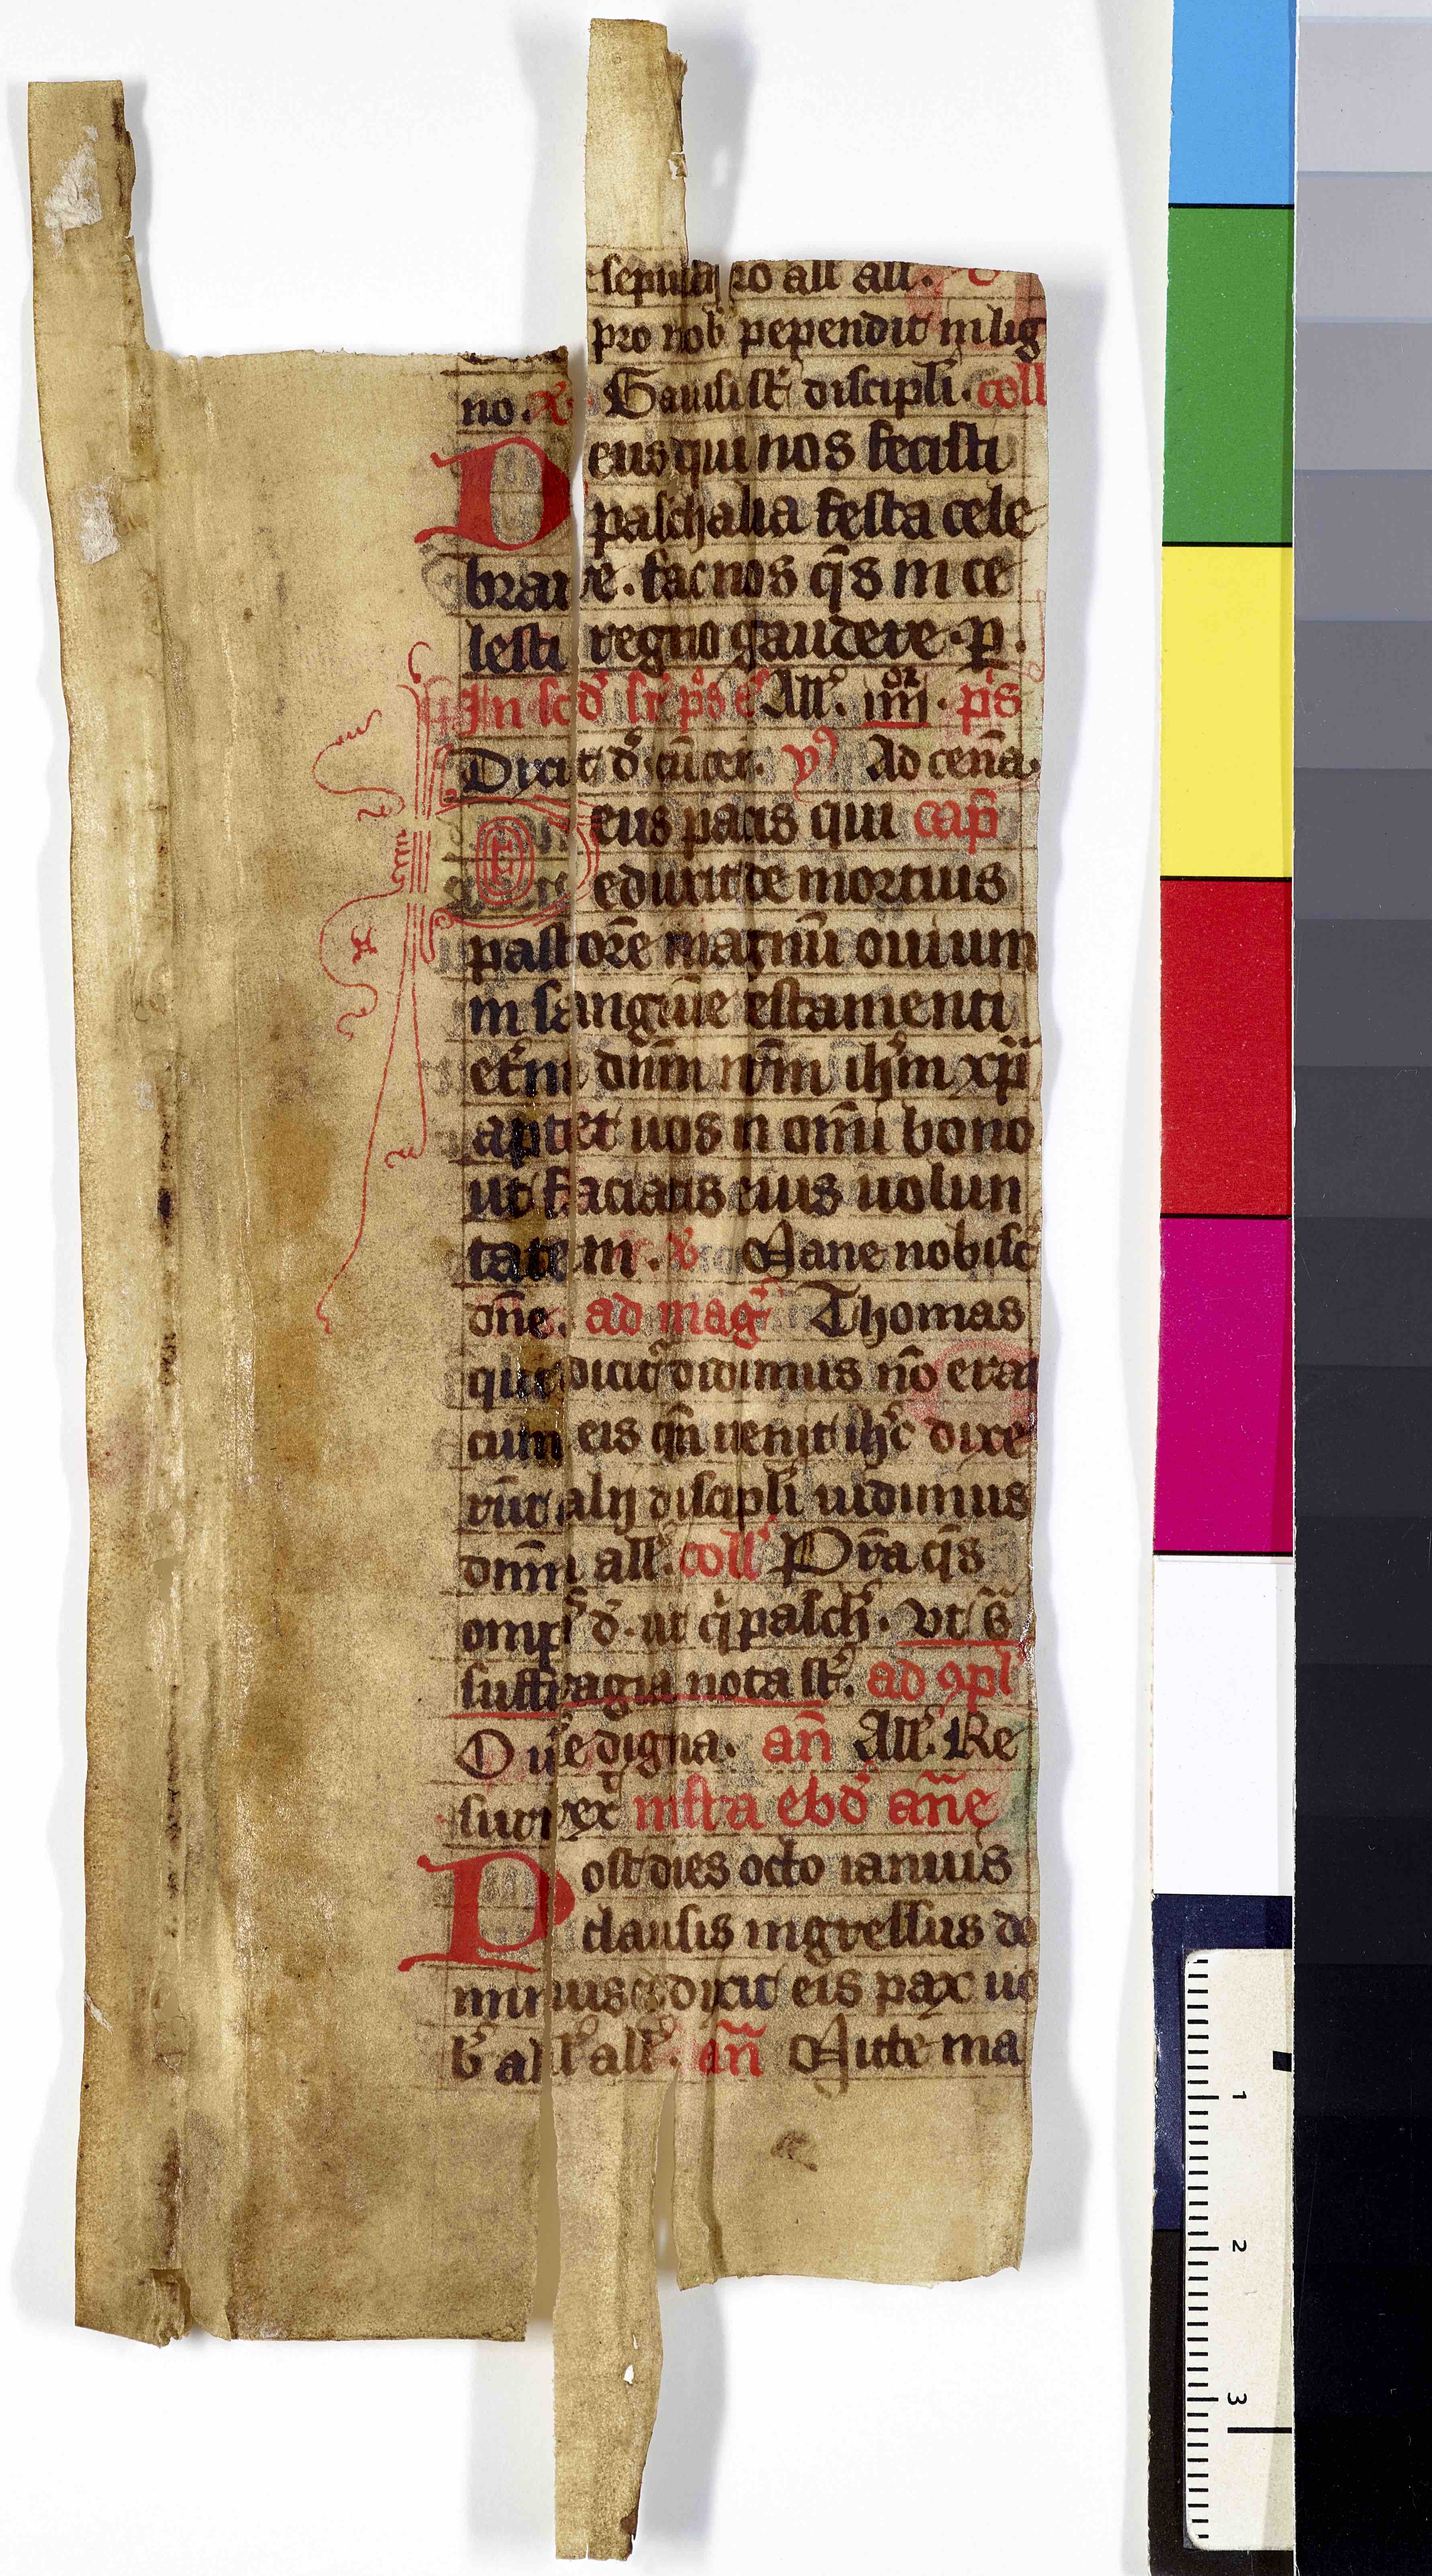 sepulchro all all.
pro nob pependit in lig
no. Gauisi st̄ discipli. coll
Deus qui nos fecisti
paschalia festa cele
brare. fac nos q̄s in ce
lesti regno gaudere. p.
In scd̓ All̓. iiii. p̓s
Dixit d̓. Ad cen̄a
Deus pacis qui cap̄
eduxit de mortuis
pastorē magnū ouium
in sanguīe testamenti
et̓ni dn̄m nr̄m ih̓m xp̄
aptet uos in om̄i bono
ut faciatis eius uolun
tatem. Mane nobisc̄
dn̄e. ad mag̓ Thomas
qui dicit̓ didimus nō erat
cum eis qn̄ uenit ih̓c dixe
rūt alij discipli uidimus
dnm̄ all̓. coll̓ Pr̄a q̄s
omp̓s d̓. ut q̓ pasch̓. vt s̄
suffragia nota st̓. ad ꝯpl̓
O ue̓ digna. an̄ All̓. Re
surrex̓ infra ebd̓ an̄e
Post dies octo ianuis
clausis ingressus do
minus dixit eis pax uo
b̓ all̓ all̓. an̄ Mitte ma